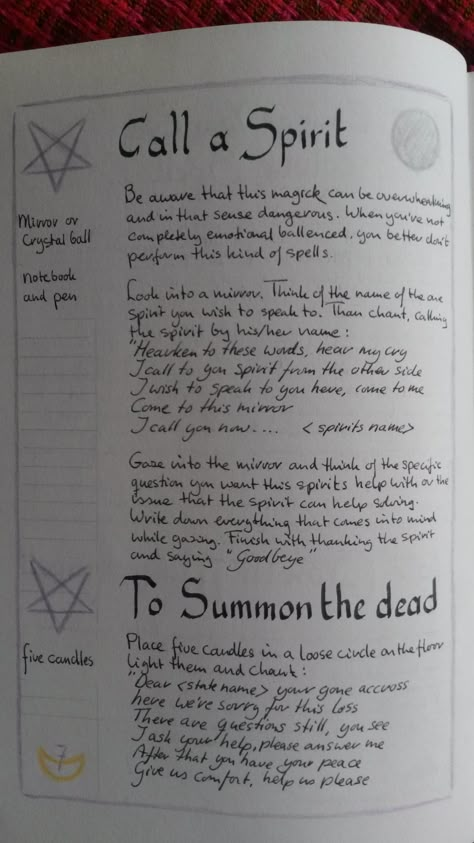 Call a Spirit
Mirror or
Crystal ball
notebook
and pen
Be aware that this magick can be overwhelming
and in that sense dangerous. When you've not
completely emotional ballenced, you better don't
perform this kind of spells.
Look into a mirror. Think of the name of the one
spirit you wish to speak to. Than chant, calling
the spirit by his/her name:
"Hearken to these words, hear my cry
I call to you Spirit from the other side
I wish to speak to you here, come to me
Come to this mirror
I call you now.... <spirits name>
Gaze into the mirror and think of the specific
question you want this spirits help with or the
issue that the spirit can help solving.
Write down everything that comes into mind
while gazing. Finish with thanking the spirit
and saying "Goodbeye"
To Summon the dead
five candles
Place five candles in a loose circle on the floor
light them and chant:
"Dear <state name> your gone accross
here we're sorry for this loss
There are questions still, you see
I ask your help, please answer me
After that you have your peace
Give us comfort, help us please
7